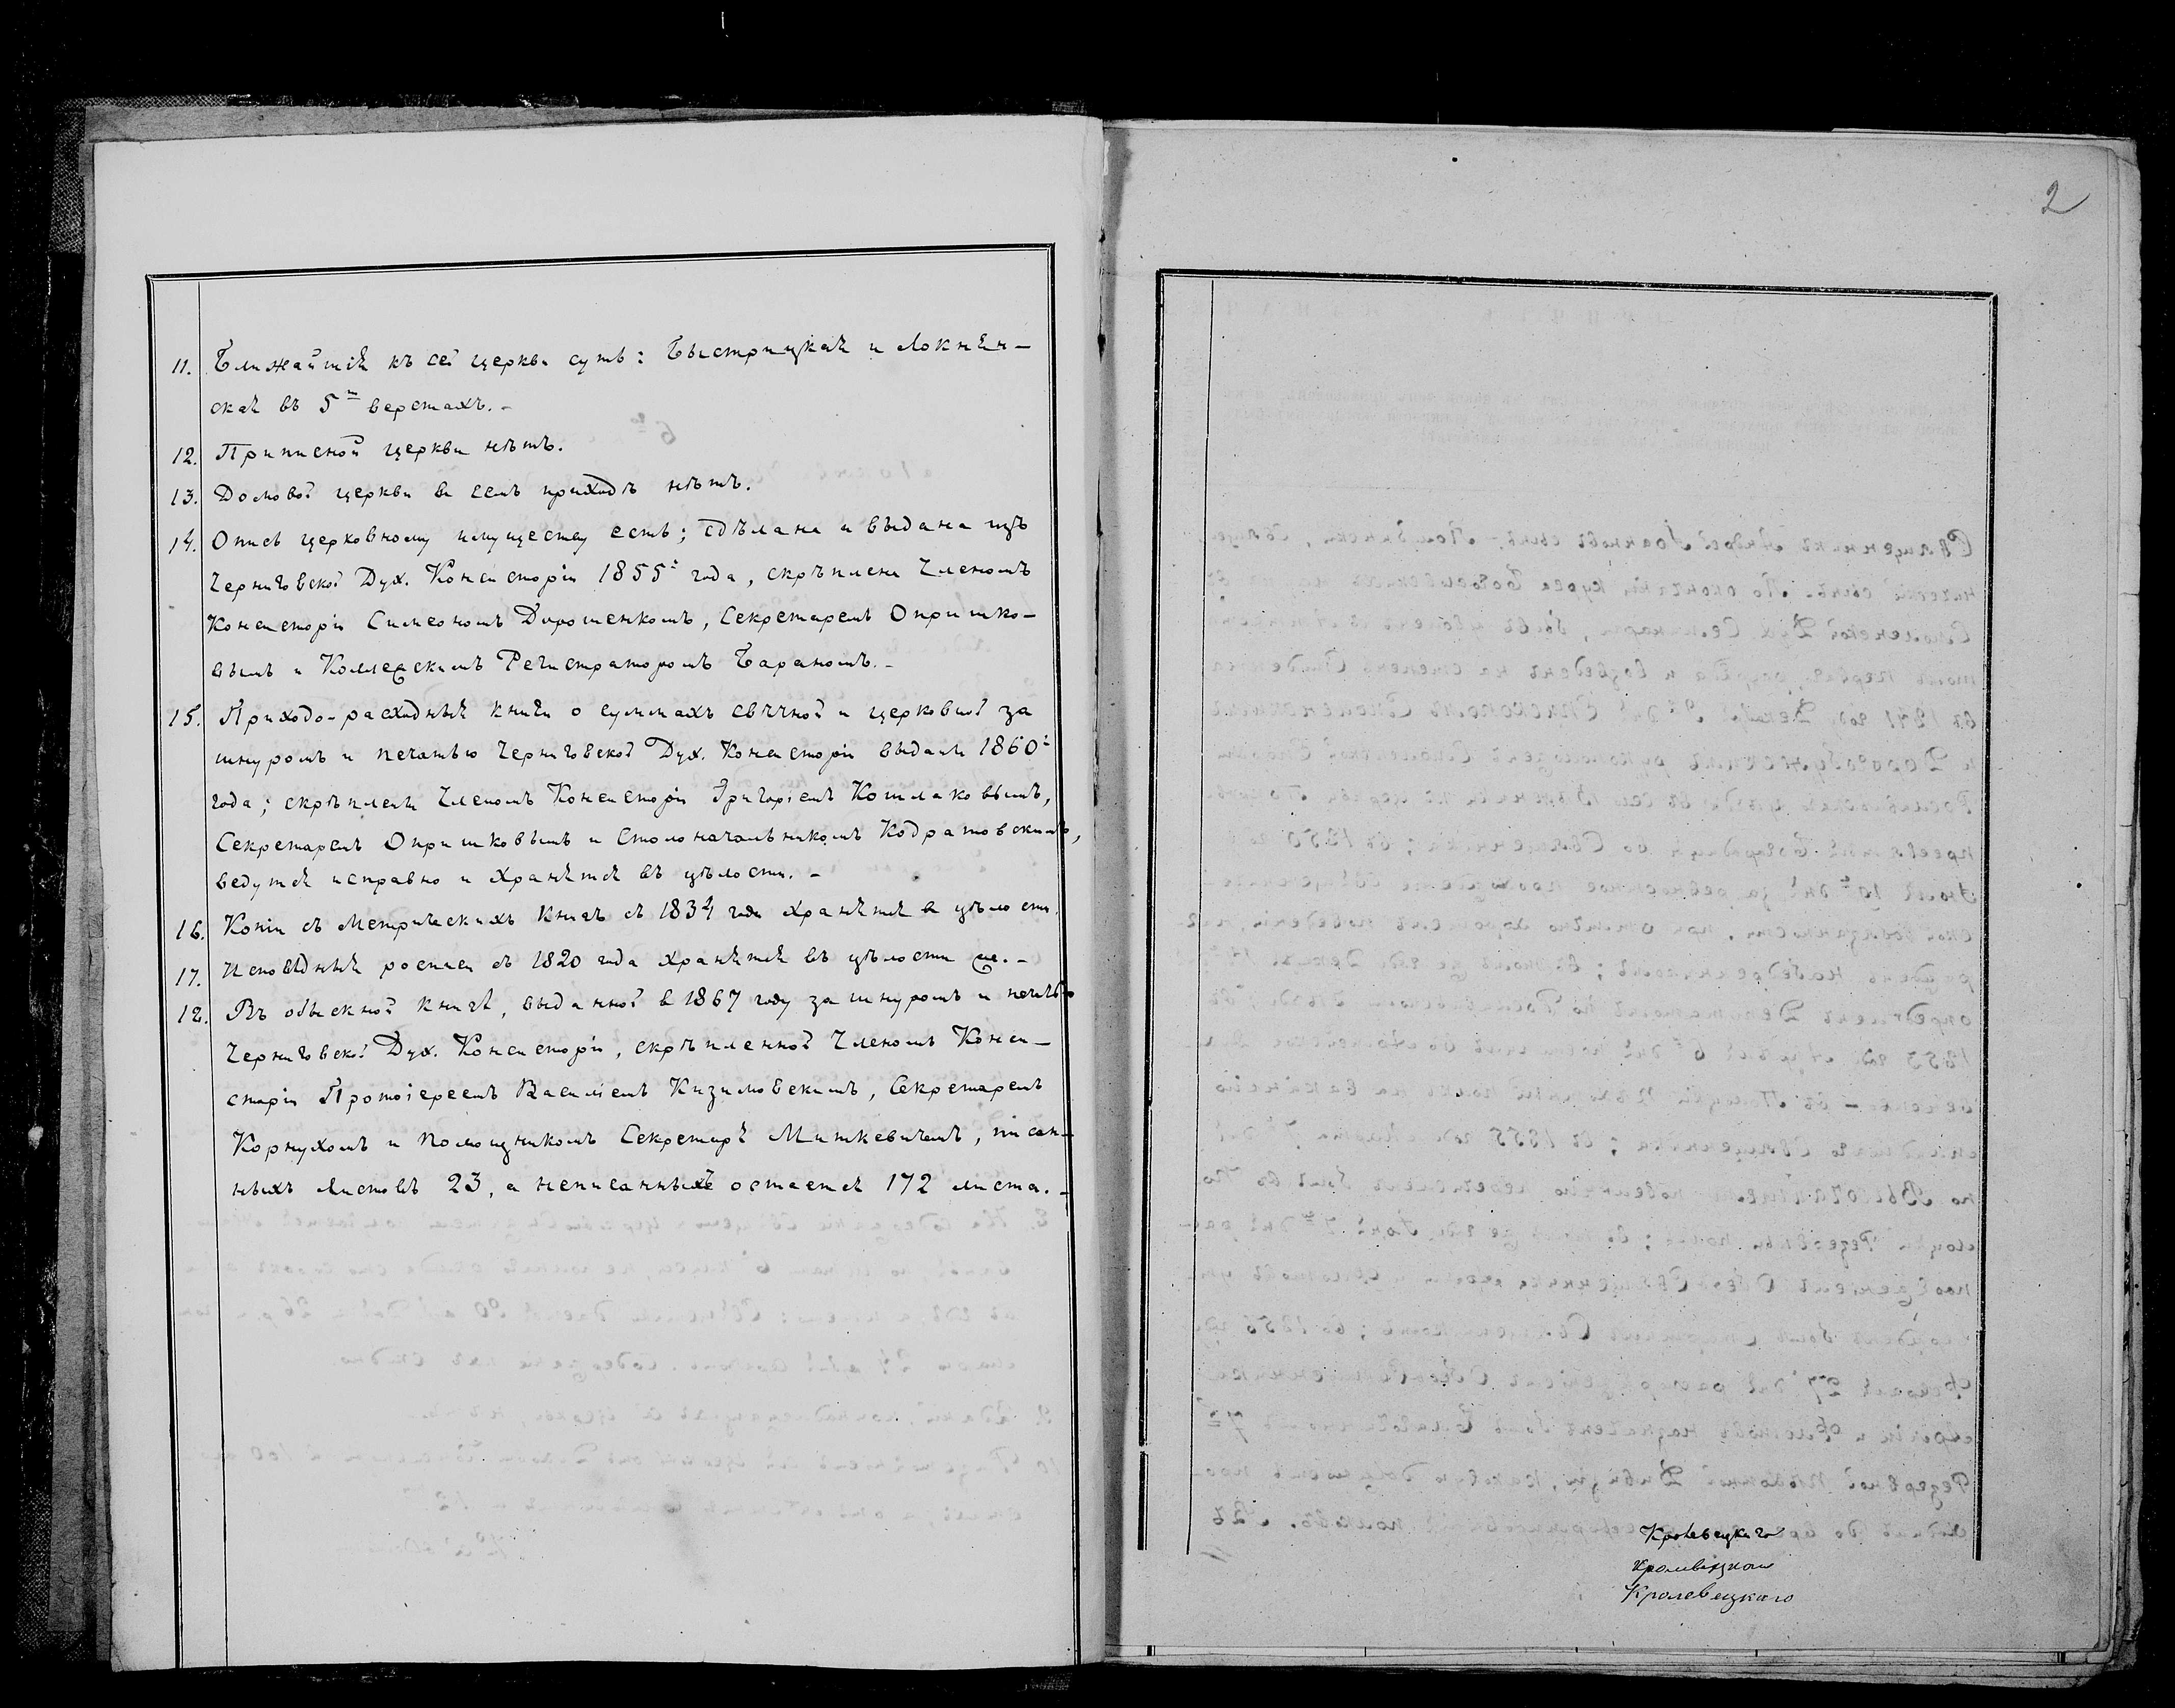 11. Ближайшія къ сей церкви суть: Быстрицкая и Локнян-
ская въ 5ти верстахъ.-
12. Приписной церкви нѣтъ.
13. Домовой церкви въ семъ приходѣ нѣтъ.
14. Опись церковному имуществу есть; сдѣлана и выдана изъ
Черниговской Дух. Консисторіи 1855го года, скрѣплена Членомъ
Консисторіи Симеономъ Дорошенкомъ, Секретаремъ Опришко-
вымъ и Коллежскимъ Регистраторомъ Бараномъ.-
15. Приходо-расходныя книги о суммахъ свѣчной и церковной за
шнуромъ и печатью Черниговской Дух. Консисторіи выданы 1860го
года; скрѣплены Членомъ Консисторіи Григоріемъ Кошлаковымъ,
Секретаремъ Опришковымъ и Столоначальникомъ Кодратовскимъ,
ведутся исправно и хранятся въ цѣлости.-
16. Копіи съ Метрическихъ книгъ съ 1834 года хранятся въ цѣлости.
17. Исповѣдныя росписи съ 1820 года хранятся въ цѣлости
18. Въ обыскной книгѣ, выданной въ 1867 году за шнуромъ и печатью
Черниговской Дух. Консисторіи, скрѣпленной Членомъ Конси-
сторіи Протоіереемъ Василіемъ Кизимовскимъ, Секретаремъ
Корнухомъ и Помощникомъ Секретаря Миткевичемъ, писан-
ныхъ листовъ 23, а неписанныхъ остается 172 листа.-
2
Кролевецкаго
Кролевецкаго
Кролевецкаго